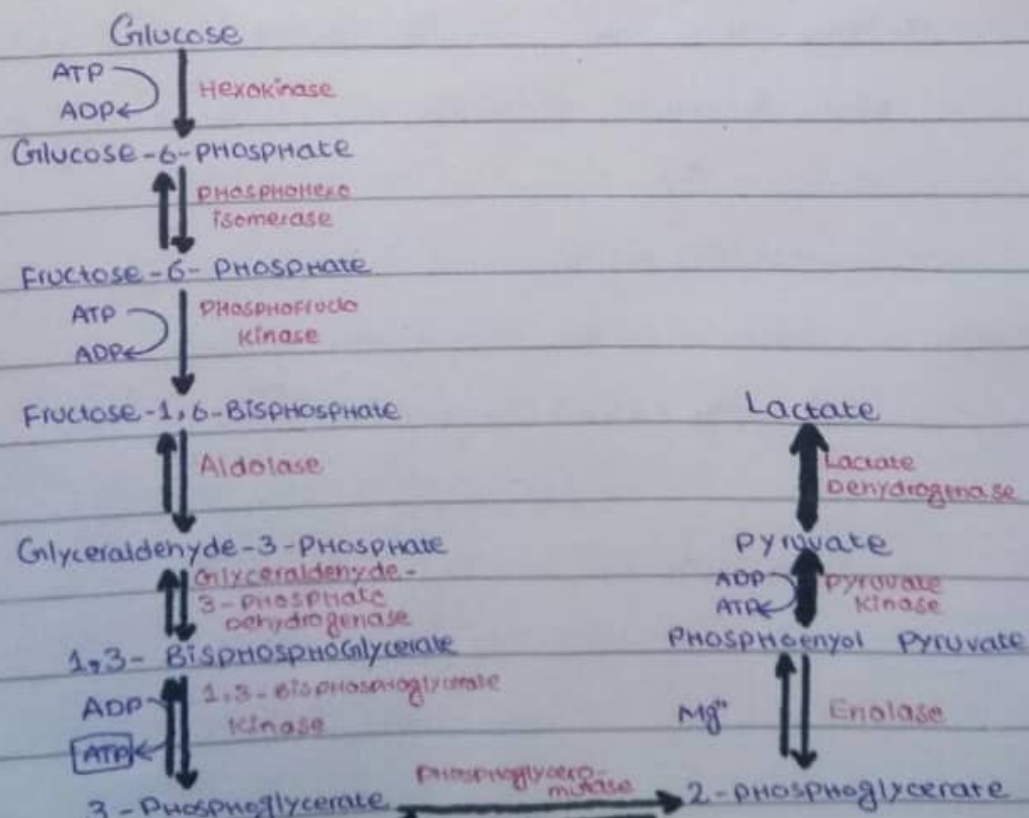 Glucose
ATP
ADP
Hexokinase
Glucose-6-Phosphate
Phosphohexo
isomerase
Fructose-6-Phosphate
ATP
ADP
Phosphofructo
Kinase
Fructose-1,6-Bisphosphate
Aldolase
Glyceraldehyde-3-Phosphate
Glyceraldehyde-
3-Phosphate
Dehydrogenase
1,3-Bisphosphoglycerate
ADP
ATP
1,3-Bisphosphoglycerate
Kinase
3-Phosphoglycerate
Phosphoglycero-
mutase
2-Phosphoglycerate
Mg++
Enolase
Phosphoenyol Pyruvate
ADP
ATP
Pyruvate
Kinase
Pyruvate
Lactate
Dehydrogenase
Lactate